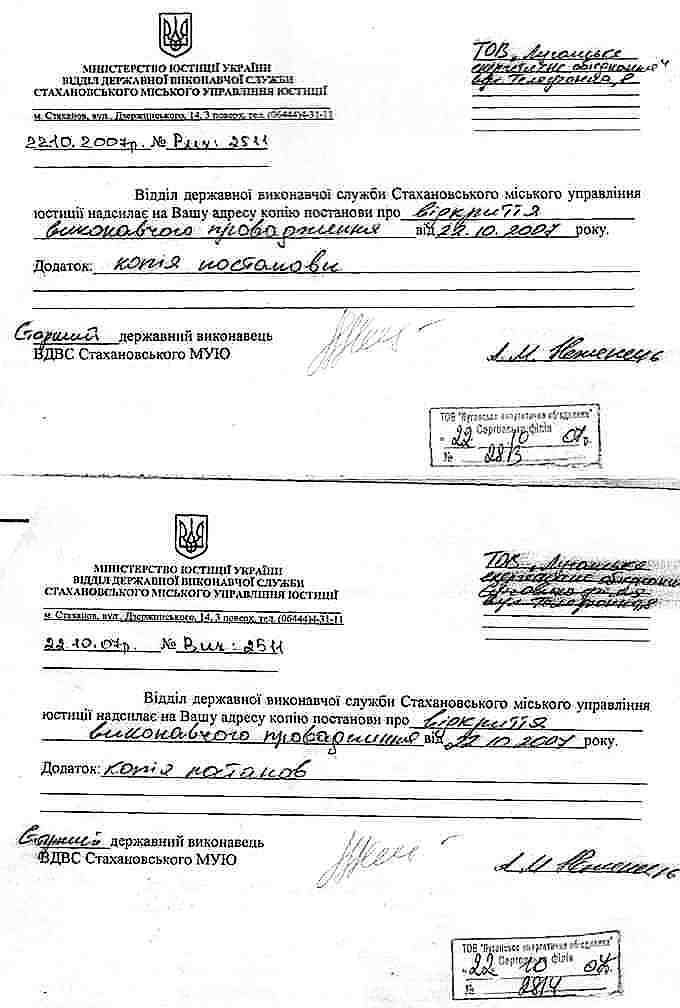 МІНІСТЕРСТВО ЮСТИЦІЇ УКРАЇНИ
ВІДДІЛ ДЕРЖАВНОЇ ВИКОНАВЧОЇ СЛУЖБИ
СТАХАНОВСЬКОГО МІСЬКОГО УПРАВЛІННЯ ЮСТИЦІЇ
м. Стаханов, вул. Дзержинського, 14, 3 поверх, тел. (06444)4-31-11
22.10.2007р. № Вих: 2511
ТОВ „Луганське
енергетичне обєднання"
вул Телефонна, 8
Відділ державної виконавчої служби Стахановського міського управління
юстиції надсилає на Вашу адресу копію постанови про віркриття
виконавчого провадження від 22.10.2007 року.
Додаток: копія постанови
Старший державний виконавець
ВДВС Стахановського МУЮ
ТОВ "Луганське енергетичне об'єднання"
філія
"22 10 07р.
№ 2813
МІНІСТЕРСТВО ЮСТИЦІЇ УКРАЇНИ
ВІДДІЛ ДЕРЖАВНОЇ ВИКОНАВЧОЇ СЛУЖБИ
СТАХАНОВСЬКОГО МІСЬКОГО УПРАВЛІННЯ ЮСТИЦІЇ
м. Стаханов, вул. Дзержинського, 14, 3 поверх, тел. (06444)4-31-11
22.10.07г. № Вих: 2511
ТОВ „Луганське
енергетичне
вул Телефонна, 8
Відділ державної виконавчої служби Стахановського міського управління
юстиції надсилає на Вашу адресу копію постанови про віркриття
виконавчого провадження від 22 10 2007 року.
Додаток: копія постанов
Старший державний виконавець
ВДВС Стахановського МУЮ
ТОВ "Луганське енергетичне об'єднання"
філія
"22 10 07р.
№ 2814